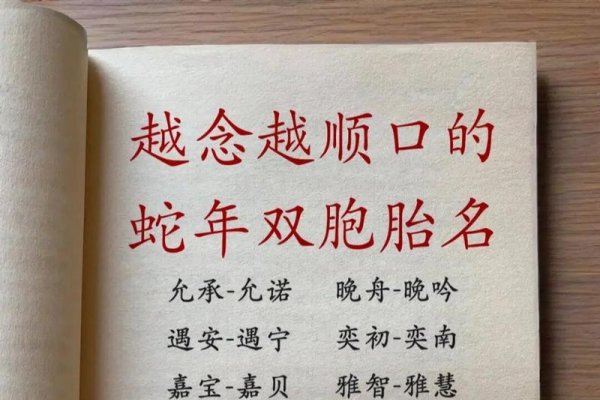 越念越顺口的
蛇年双胞胎名
允承-允诺 晚舟-晚吟
遇安-遇宁 奕初-奕南
嘉宝-嘉贝 雅智-雅慧